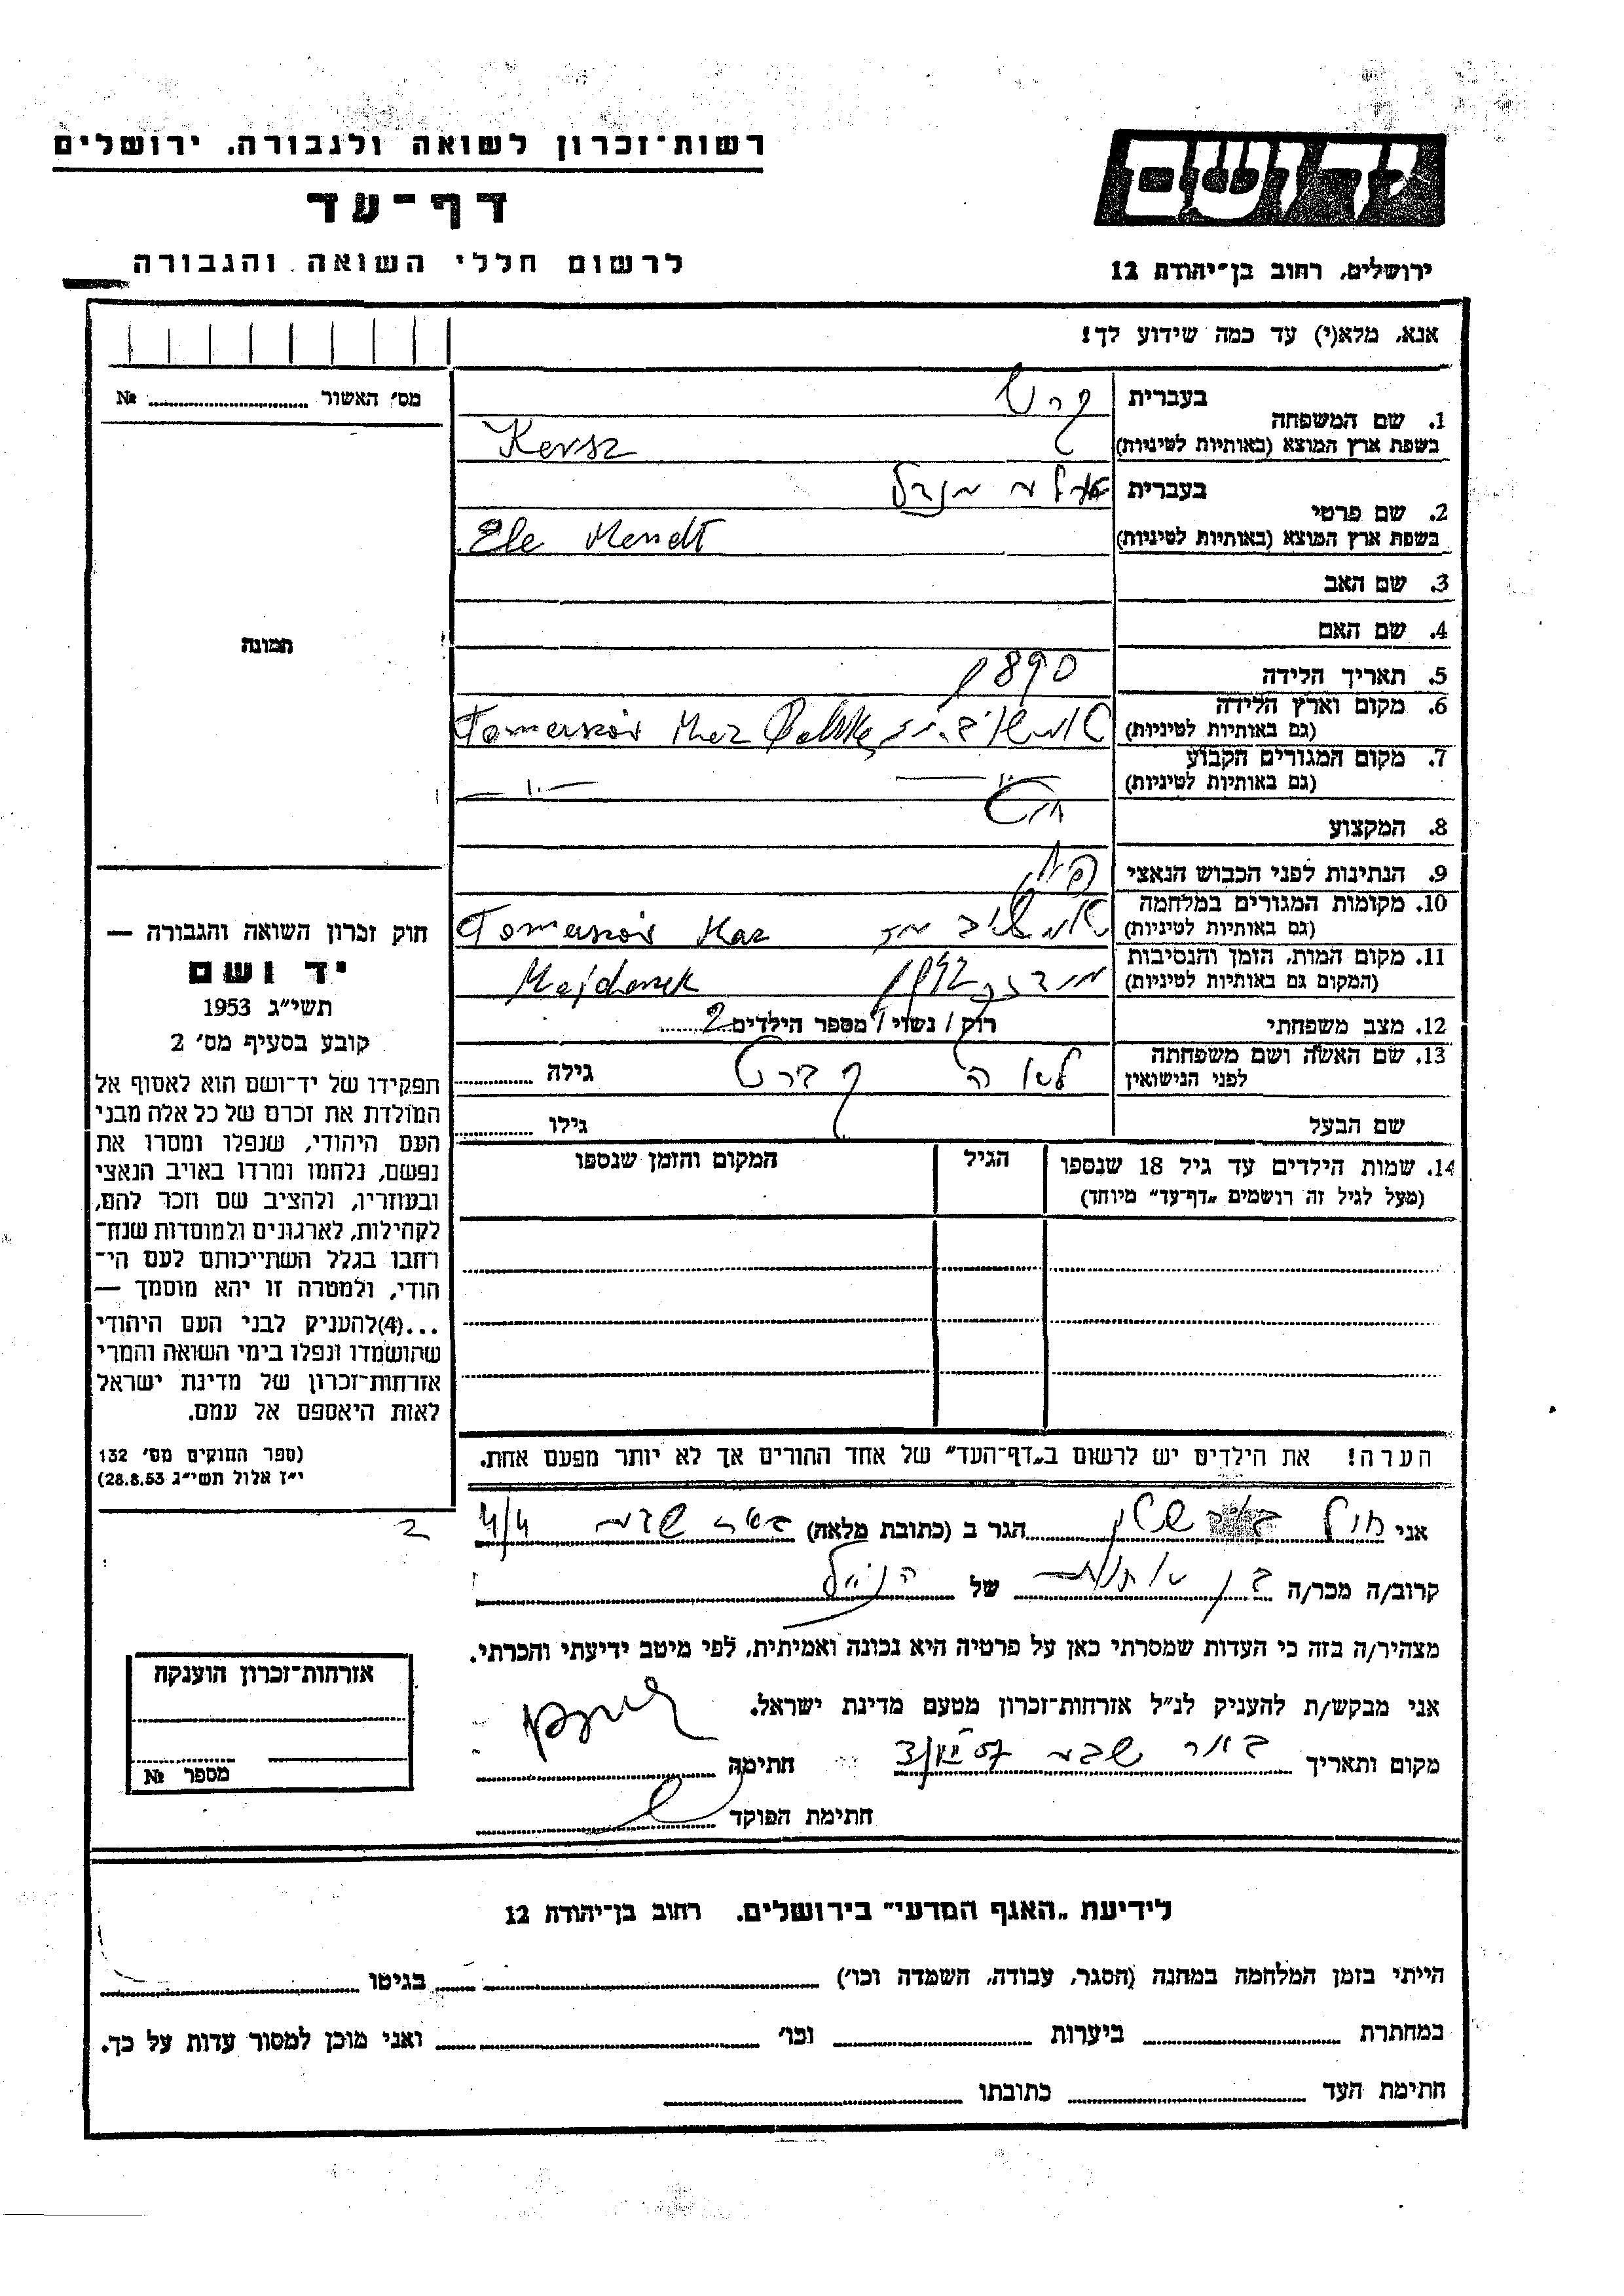 רשות־זכרון לשואה ולגבורה, ירושלים
יד ושם
דף־עד
לרשום חללי השואה והגבורה
ירושלים, רחוב בן־יהודה 12
אנא, מלא(י) עד כמה שידוע לך!
מס׳ האשור № 
תמונה
1. שם המשפחה
בעברית קרש
בשפת ארץ המוצא (באותיות לטיניות) Kersz
2. שם פרטי
בעברית מנדל
בשפת ארץ המוצא (באותיות לטיניות) Ele Mendl
3. שם האב
4. שם האם
5. תאריך הלידה 1890
6. מקום וארץ הלידה
(גם באותיות לטיניות) Tomaszów Maz Polska
7. מקום המגורים הקבוע
(גם באותיות לטיניות) —"—
8. המקצוע
9. הנתינות לפני הכבוש הנאצי
10. מקומות המגורים במלחמה
(גם באותיות לטיניות) טומשוב מז Tomaszów Maz
11. מקום המות, הזמן והנסיבות
(המקום גם באותיות לטיניות) מידנק 1942 Majdanek
12. מצב משפחתי רוק / נשוי / מספר הילדים 2
13. שם האשה ושם משפחתה
לפני הנישואין לאה גילה
שם הבעל גילו
14. שמות הילדים עד גיל 18 שנספו
(מעל לגיל זה רושמים „דף־עד" מיוחד)
הגיל
המקום והזמן שנספו
הערה! את הילדים יש לרשום ב„דף־העד" של אחד ההורים אך לא יותר מפעם אחת.
חוק זכרון השואה והגבורה —
יד ושם
תשי״ג 1953
קובע בסעיף מס׳ 2
תפקידו של יד־ושם הוא לאסוף אל
המולדת את זכרם של כל אלה מבני
העם היהודי, שנפלו ומסרו את
נפשם, נלחמו ומרדו באויב הנאצי
ובעוזריו, ולהציב שם וזכר להם,
לקהילות, לארגונים ולמוסדות שנח־
רבו בגלל השתייכותם לעם הי־
הודי, ולמטרה זו יהא מוסמך —
...(4)להעניק לבני העם היהודי
שהושמדו ונפלו בימי השואה והמרי
אזרחות־זכרון של מדינת ישראל
לאות היאספם אל עמם.
(ספר החוקים מס׳ 132
י״ז אלול תשי״ג 28.8.53)
אני הגר ב (כתובת מלאה) באר שבע
קרוב/ה מכר/ה בן של הנ״ל
מצהיר/ה בזה כי העדות שמסרתי כאן על פרטיה היא נכונה ואמיתית, לפי מיטב ידיעתי והכרתי.
אני מבקש/ת להעניק לנ״ל אזרחות־זכרון מטעם מדינת ישראל.
מקום ותאריך באר שבע חתימה
חתימת הפוקד
אזרחות־זכרון הוענקה
מספר №
לידיעת „האגף המדעי" בירושלים, רחוב בן־יהודה 12
הייתי בזמן המלחמה במחנה (הסגר, עבודה, השמדה וכו׳) בגיטו
במחתרת ביערות וכו׳ ואני מוכן למסור עדות על כך.
חתימת העד כתובתו